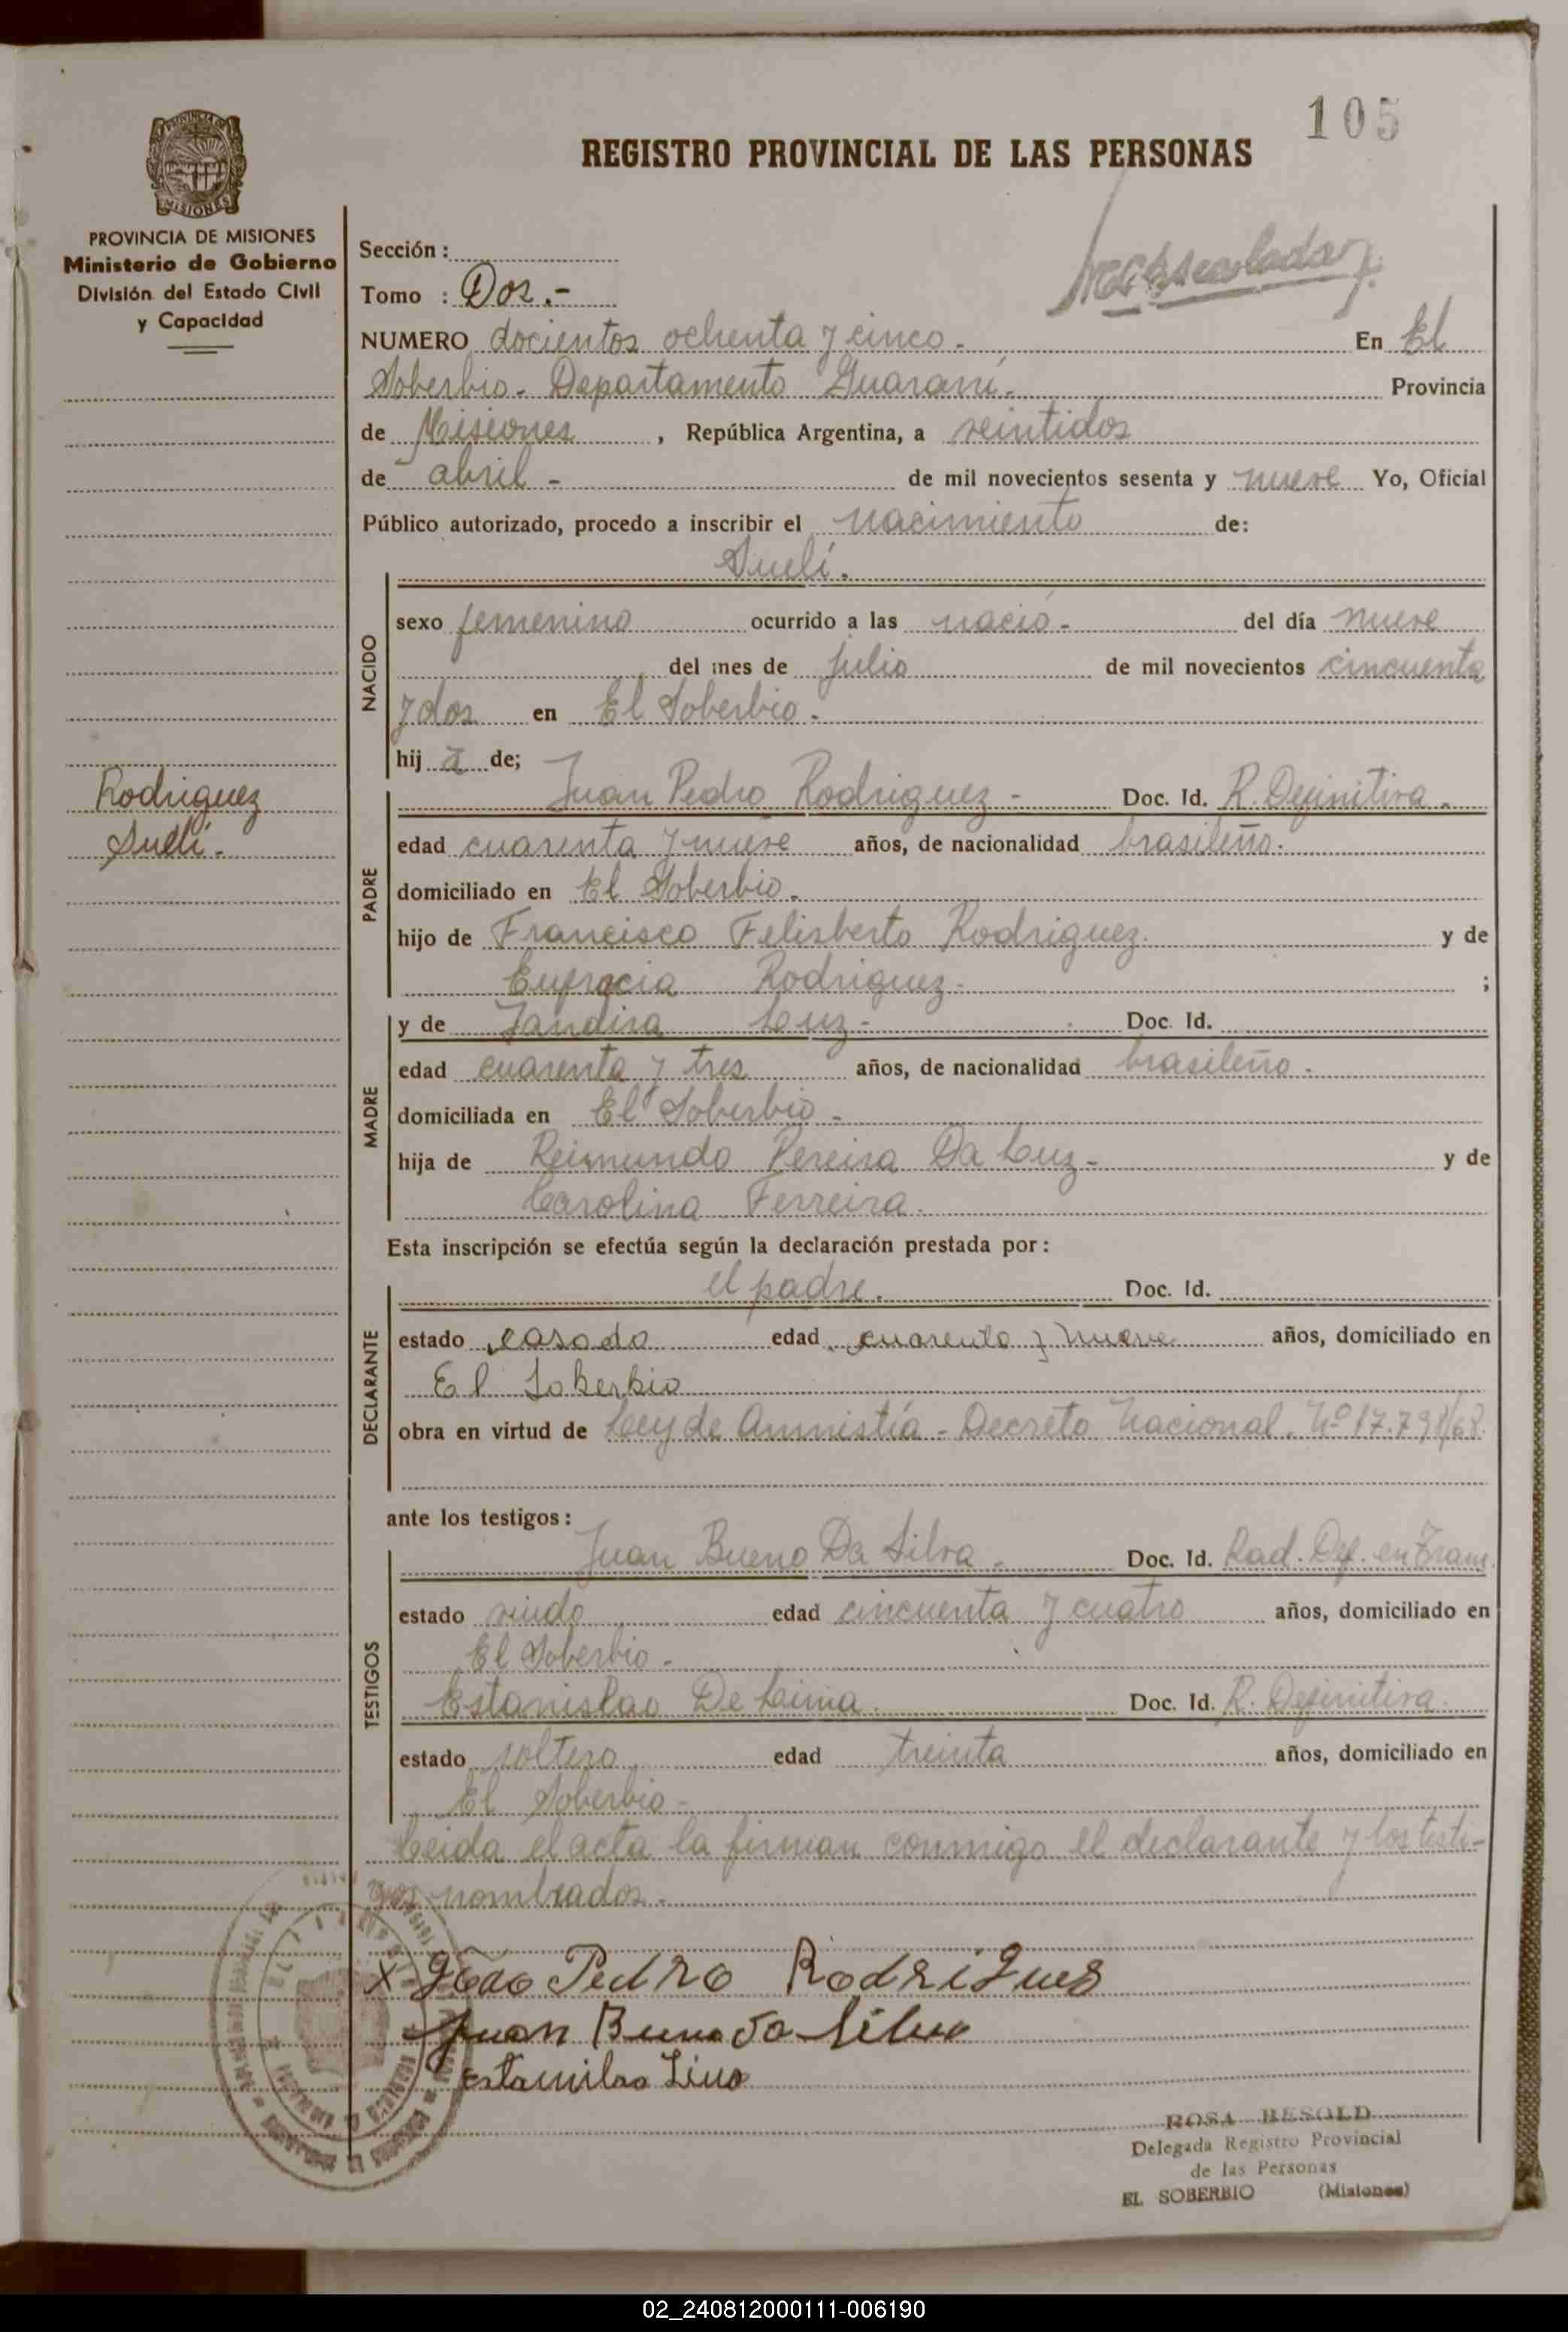 105
REGISTRO PROVINCIAL DE LAS PERSONAS
MISIONES
PROVINCIA DE MISIONES
Ministerio de Gobierno
División del Estado Civil
y Capacidad
Sección :
Tomo : Dos.-
NUMERO docientos ochenta y cinco - En El
Soberbio - Departamento Guaraní - Provincia
de Misiones , República Argentina, a veintidos
de abril - de mil novecientos sesenta y nueve Yo, Oficial
Público autorizado, procedo a inscribir el nacimiento de:
Suelí.
NACIDO
sexo femenino ocurrido a las nació - del día nueve
del mes de julio de mil novecientos cincuenta
y dos en El Soberbio -
hij a de;
Rodriguez
Suelí.-
PADRE
Juan Pedro Rodriguez - Doc. Id. R. Definitiva.
edad cuarenta y nueve años, de nacionalidad brasileño.
domiciliado en El Soberbio.
hijo de Francisco Felisberto Rodriguez. y de
Eufracia Rodriguez - ;
MADRE
y de Jandira Luz - Doc. Id.
edad cuarenta y tres años, de nacionalidad brasileño.
domiciliada en El Soberbio -
hija de Reimundo Pereira Da Luz - y de
Carolina Ferreira.
Esta inscripción se efectúa según la declaración prestada por:
DECLARANTE
el padre. Doc. Id.
estado casado edad cuarenta y nueve años, domiciliado en
El Soberbio
obra en virtud de Ley de Amnistía - Decreto Nacional. Nº 17.798/68.
ante los testigos:
TESTIGOS
Juan Bueno Da Silva - Doc. Id. Rad. Def. en Tram.
estado viudo edad cincuenta y cuatro años, domiciliado en
El Soberbio -
Estanislao De Lima. Doc. Id. R. Definitiva.
estado soltero edad treinta años, domiciliado en
El Soberbio -
Leida el acta la firman conmigo el declarante y los testi-
gos nombrados -
x João Pedro Rodrigues
Juan Bueno da Silva
Estanilao Lima
ROSA RESOLD
Delegada Registro Provincial
de las Personas
EL SOBERBIO (Misiones)
02_240812000111-006190